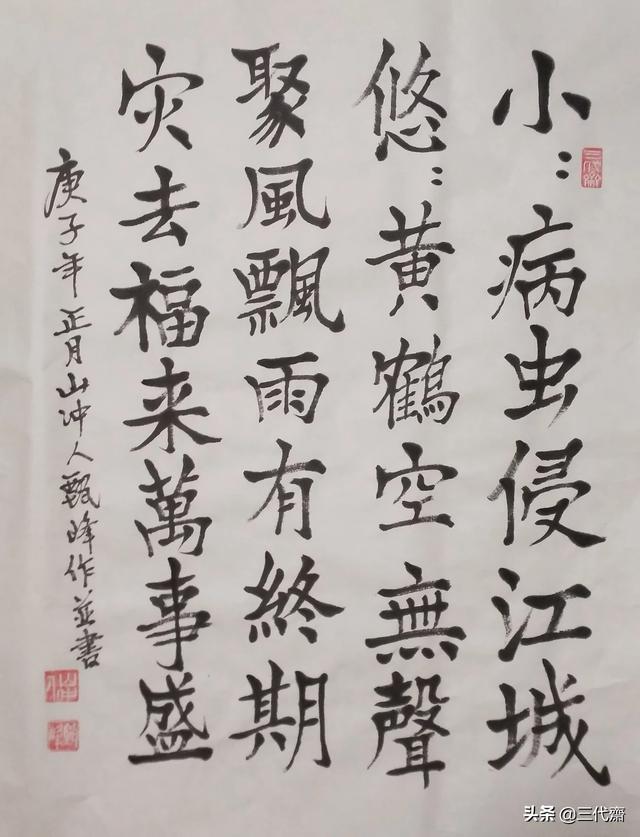 小:病虫侵江城
悠:黄鶴空無聲
聚風飄雨有終期
灾去福来萬事盛
庚子年正月山冲人甄峰作並書
三代齋
头条 @三代齋